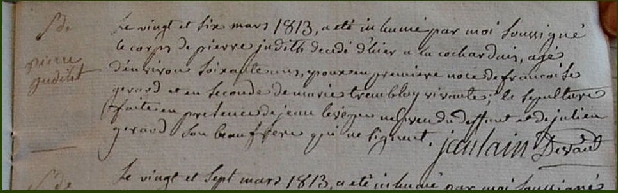 Se
pierre
judith
Le vingt et six mars 1813, a eté inhumé par moi soussigné
le corps de pierre judith decedé d'hier a la cochardais, agé
d'environs soixante ans, epoux en premiere noce de francoise
gerard et en seconde de marie tremblay vivante; la sepulture
faite en presence de jean levêque neveu du deffunt et de julien
gerard son beaufrere qui ne signent. jaulain Desserv
Se
Le vingt et sept mars 1813, a eté inhumé par moi soussigné